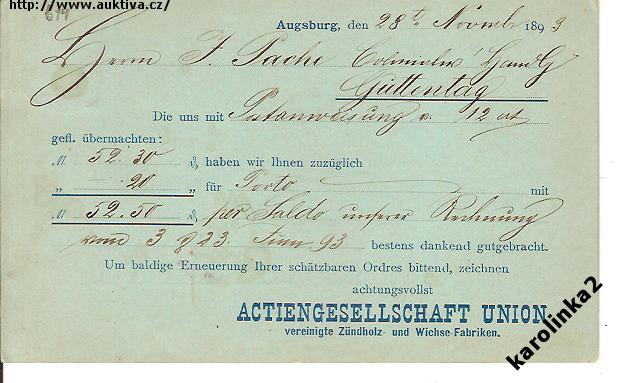 http://www.auktiva.cz/
Augsburg, den 28ten Novemb 1893
Herrn J. Pache Colonialw. Handlg
Guttentag
Die uns mit Postanweisung v. 12 ct
gefl. übermachten:
M 52.30 ₰ haben wir Ihnen zuzüglich
„ .20 „ für Porto mit
M 52.50 ₰ per Saldo unserer Rechnung
vom 3 & 23. Juni 93 bestens dankend gutgebracht.
Um baldige Erneuerung Ihrer schätzbaren Ordres bittend, zeichnen
achtungsvollst
ACTIENGESELLSCHAFT UNION
vereinigte Zündholz- und Wichse-Fabriken.
karolinka2